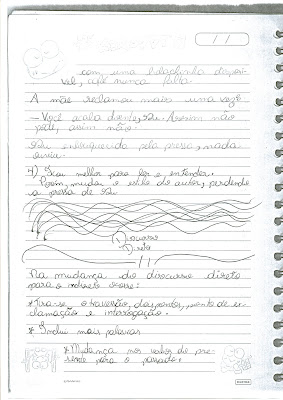 com, uma lidadinha dispon-
vel, que nunca falta
A mãe reclamou mais uma vez:
— Você acaba doente, Zu. Assim não
pode, assim não.
Zu enlouquecido pela pressa, nada
ouvia.
4) Ficou melhor para ler e entender.
Porém, mudar o estilo do autor, perdendo
a pressa de Zu
Discurso
Direto
Na mudança do discurso direto
para o indireto ocorre:
*Tira-se o travessão, dois pontos, ponto de ex-
clamação e interrogação.
* Inclui mais palavras
*Mudança nos verbos do pre-
sente para o passado.